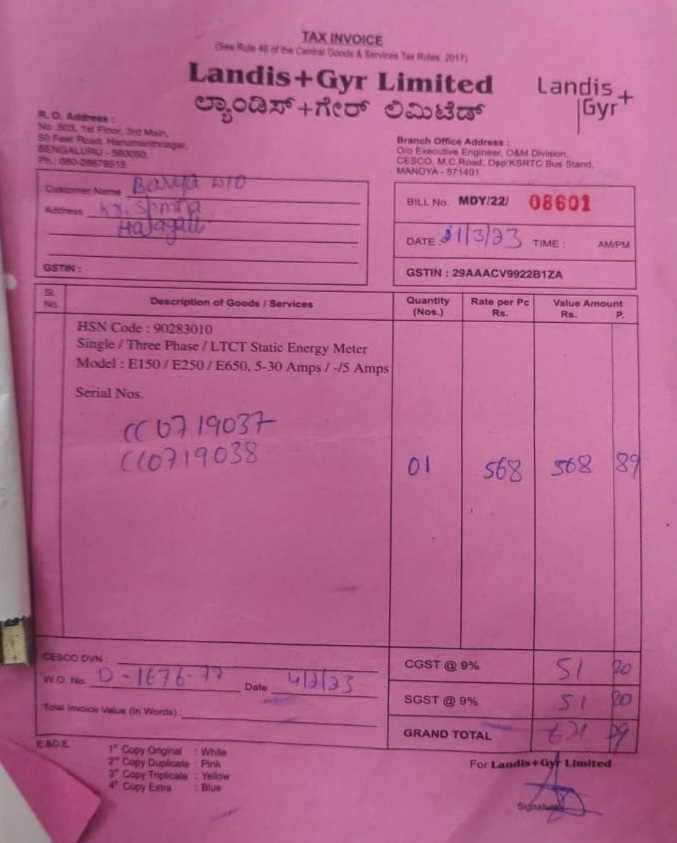 TAX INVOICE
(See Rule 46 of the Central Goods & Services Tax Rules, 2017)
Landis+Gyr Limited
ಲ್ಯಾಂಡಿಸ್+ಗೇರ್ ಲಿಮಿಟೆಡ್
Landis+
Gyr
R. O. Address :
No. 503, 1st Floor, 3rd Main,
50 Feet Road, Hanumanthnagar,
BENGALURU - 560050.
Ph.: 080-26676515
Branch Office Address :
O/o Executive Engineer, O&M Division,
CESCO, M.C.Road, Opp:KSRTC Bus Stand,
MANDYA - 571401.
Customer Name
Address
GSTIN :
BILL No. MDY/22/ 08601
DATE 21/3/23 TIME : AM/PM
GSTIN : 29AAACV9922B1ZA
Sl. No. Description of Goods / Services Quantity (Nos.) Rate per Pc Rs. Value Amount Rs. P.
HSN Code : 90283010
Single / Three Phase / LTCT Static Energy Meter
Model : E150 / E250 / E650, 5-30 Amps / -/5 Amps
Serial Nos.
CC0719037
CC0719038
01 568 568 89
CESCO DVN :
W.O. No. D-1676-77 Date 4/3/23
Total Invoice Value (In Words) :
CGST @ 9% 51 20
SGST @ 9% 51 20
GRAND TOTAL 671 29
E.&O.E.
1st Copy Original : White
2nd Copy Duplicate : Pink
3rd Copy Triplicate : Yellow
4th Copy Extra : Blue
For Landis+Gyr Limited
Signature